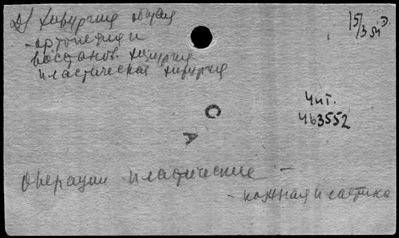 А) хирургия общая
15/3 51
- ортопедия и
восстанов. хирургия
пластическая хирургия
Чит.
463552
С
А
Операции пластические -
- кожная пластика